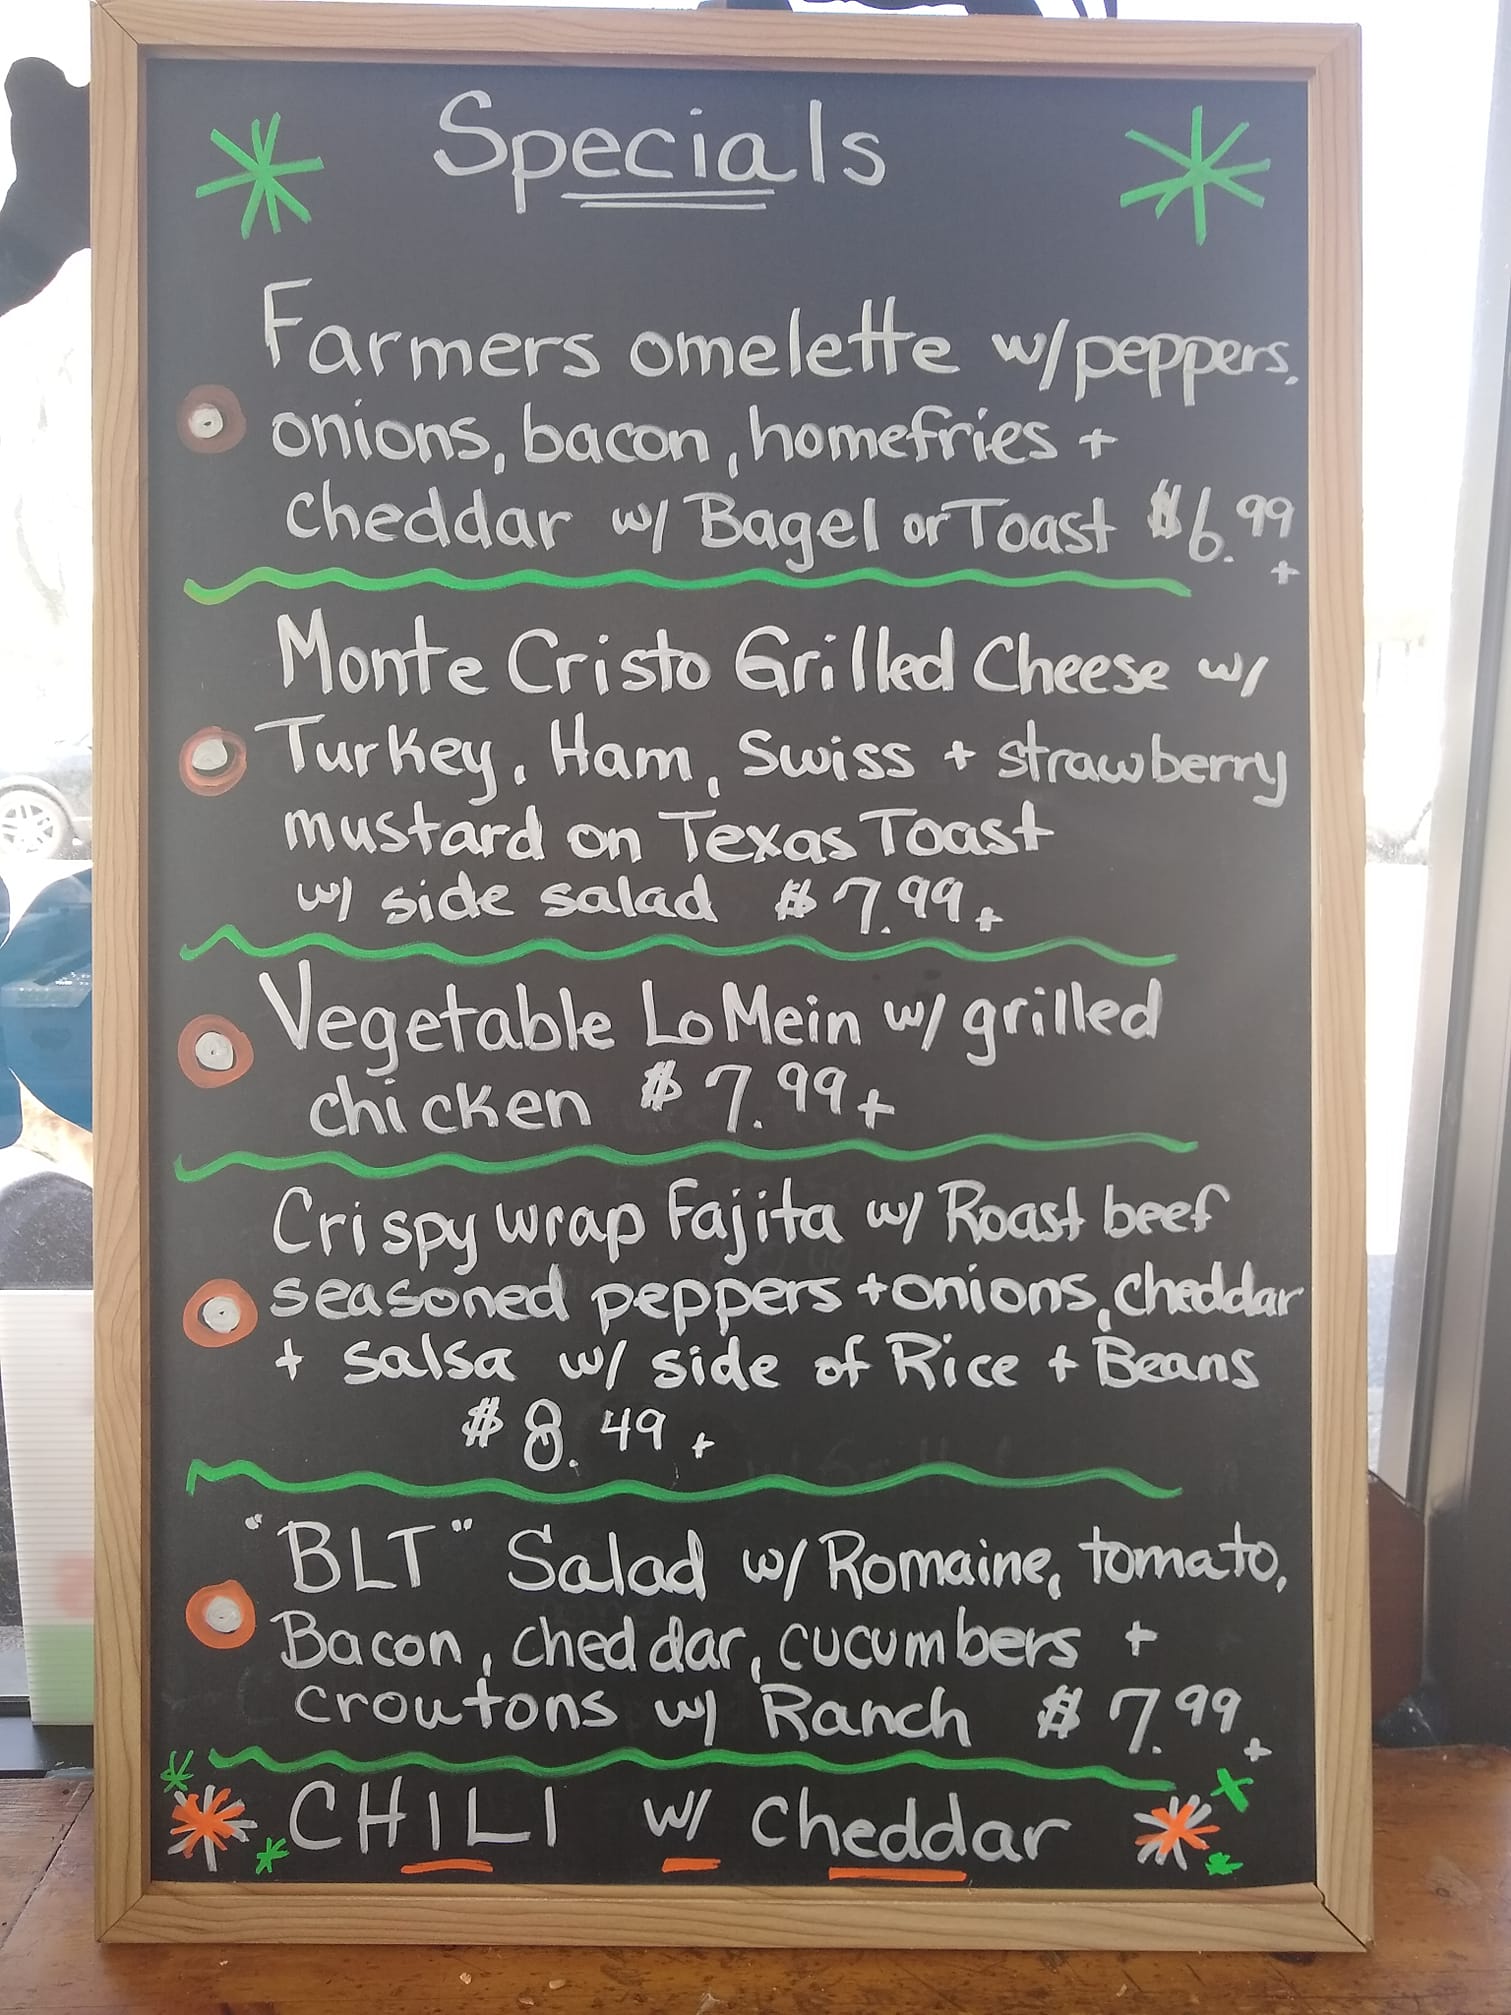 Specials
Farmers omelette w/peppers,
onions, bacon, homefries +
cheddar w/ Bagel or Toast $6.99
+
Monte Cristo Grilled Cheese w/
Turkey, Ham, Swiss + strawberry
mustard on Texas Toast
w/ side salad $7.99+
Vegetable Lo Mein w/ grilled
chicken $7.99+
Crispy wrap Fajita w/ Roast beef
seasoned peppers + onions, cheddar
+ salsa w/ side of Rice + Beans
$8.49+
"BLT" Salad w/ Romaine, tomato,
Bacon, cheddar, cucumbers +
croutons w/ Ranch $7.99+
CHILI w/ cheddar